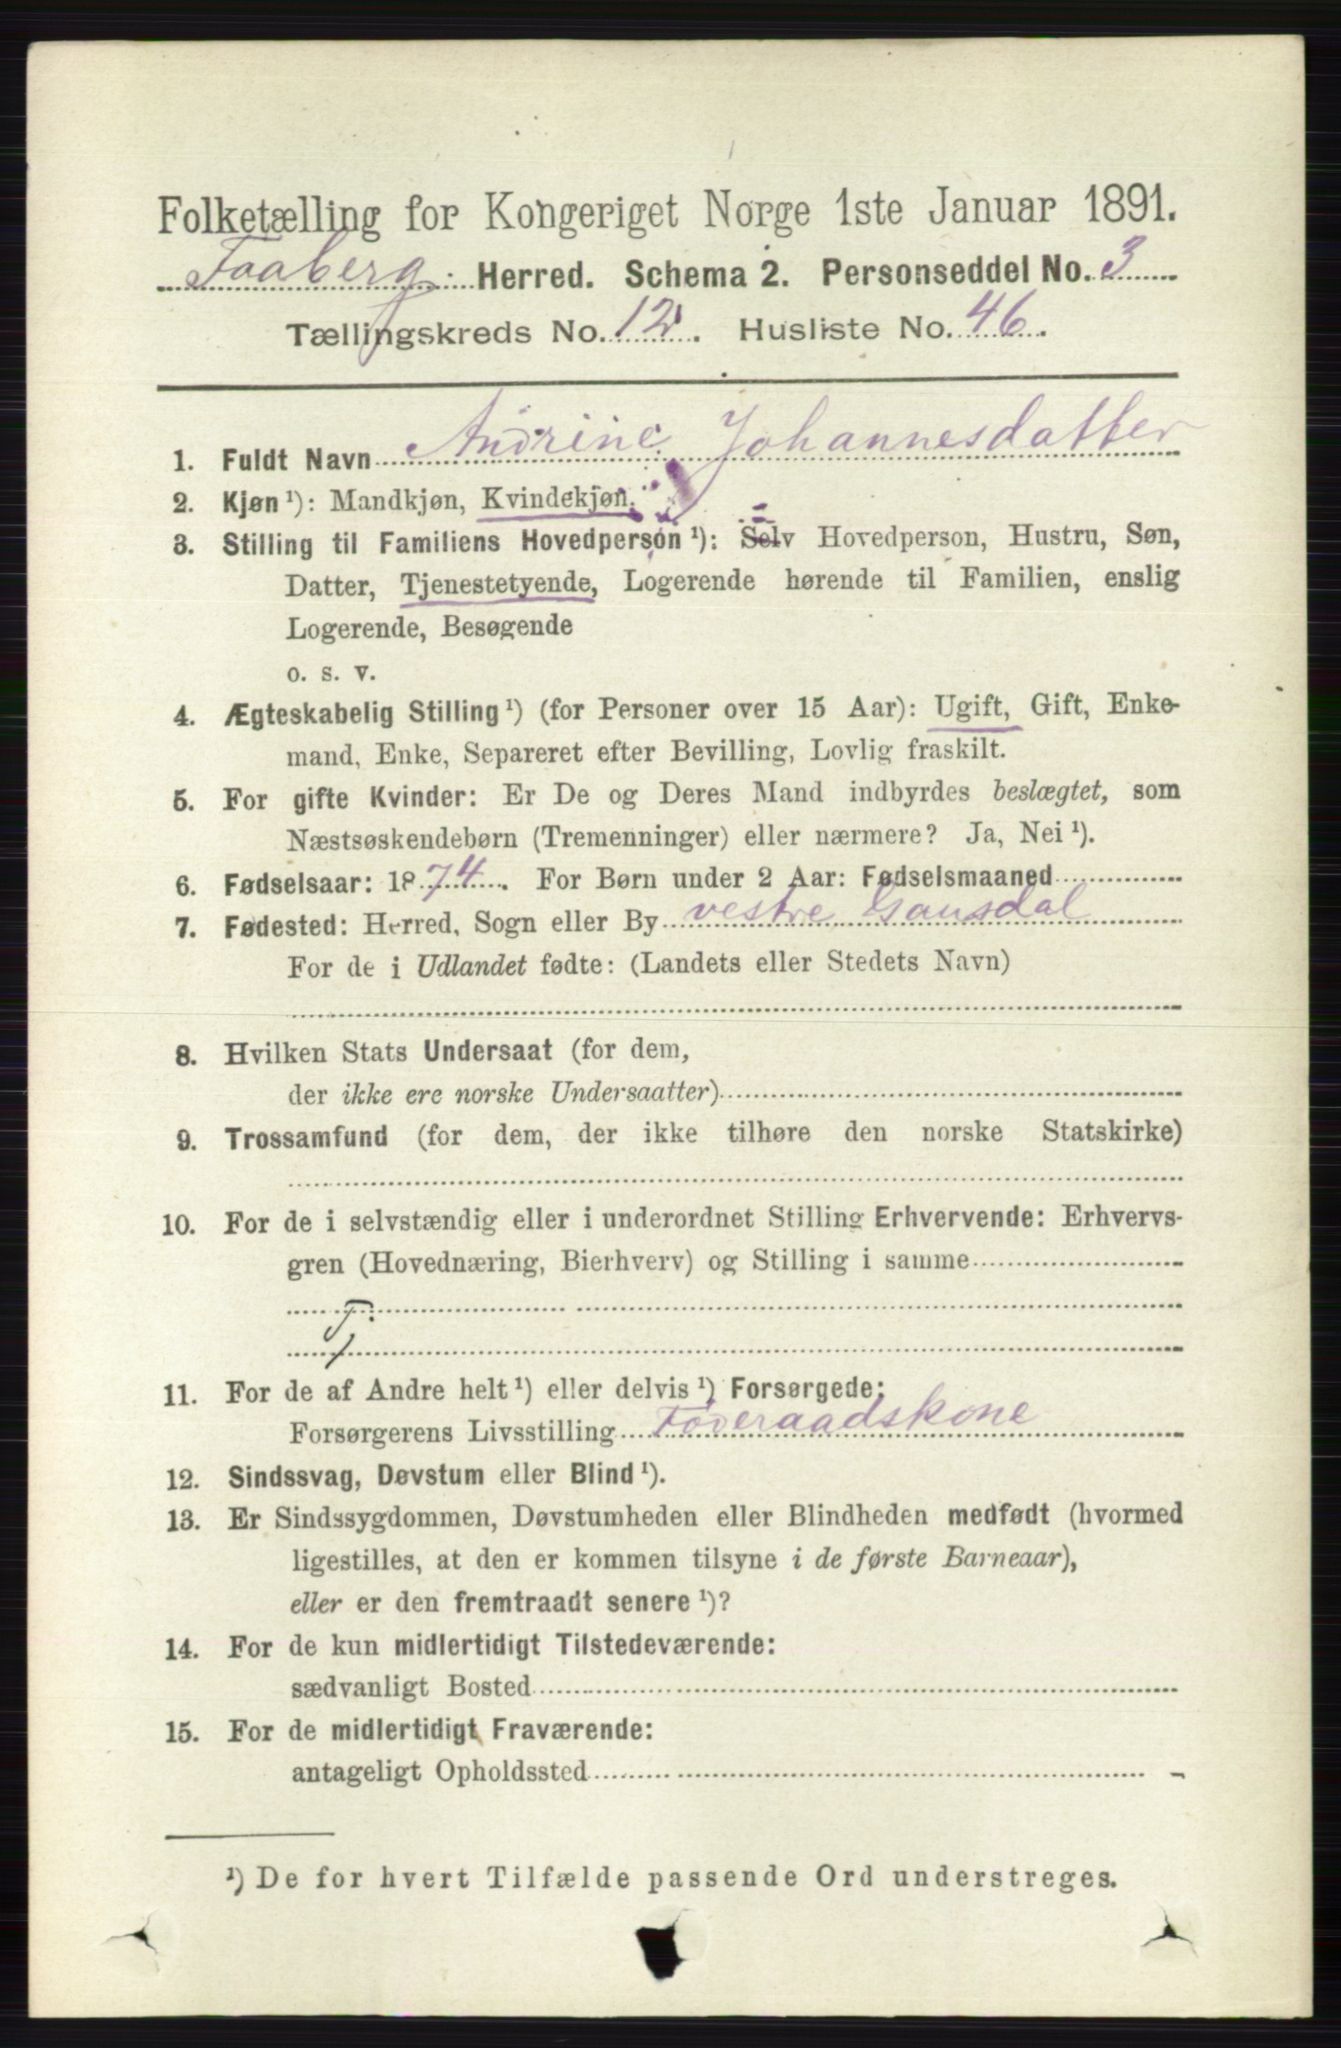 Folketælling for Kongeriget Norge 1ste Januar 1891.
Faaberg Herred. Schema 2. Personseddel No. 3
Tællingskreds No. 12. Husliste No. 46.
1. Fuldt Navn Andrine Johannesdatter
2. Kjøn ¹): Mandkjøn, Kvindekjøn.
3. Stilling til Familiens Hovedperson ¹): Selv Hovedperson, Hustru, Søn,
Datter, Tjenestetyende, Logerende hørende til Familien, enslig
Logerende, Besøgende
o. s. v.
4. Ægteskabelig Stilling ¹) (for Personer over 15 Aar): Ugift, Gift, Enke-
mand, Enke, Separeret efter Bevilling, Lovlig fraskilt.
5. For gifte Kvinder: Er De og Deres Mand indbyrdes beslægtet, som
Næstsøskendebørn (Tremenninger) eller nærmere? Ja, Nei ¹).
6. Fødselsaar: 1874. For Børn under 2 Aar: Fødselsmaaned
7. Fødested: Herred, Sogn eller By vestre Gausdal
For de i Udlandet fødte: (Landets eller Stedets Navn)
8. Hvilken Stats Undersaat (for dem,
der ikke ere norske Undersaatter)
9. Trossamfund (for dem, der ikke tilhøre den norske Statskirke)
10. For de i selvstændig eller i underordnet Stilling Erhvervende: Erhvervs-
gren (Hovednæring, Bierhverv) og Stilling i samme
11. For de af Andre helt ¹) eller delvis ¹) Forsørgede:
Forsørgerens Livsstilling Føderaadskone
12. Sindssvag, Døvstum eller Blind ¹).
13. Er Sindssygdommen, Døvstumheden eller Blindheden medfødt (hvormed
ligestilles, at den er kommen tilsyne i de første Barneaar),
eller er den fremtraadt senere ¹)?
14. For de kun midlertidigt Tilstedeværende:
sædvanligt Bosted
15. For de midlertidigt Fraværende:
antageligt Opholdssted
¹) De for hvert Tilfælde passende Ord understreges.